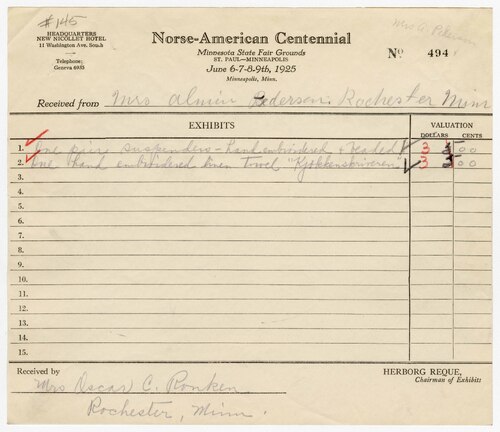 #145
HEADQUARTERS
NEW NICOLLET HOTEL
11 Washington Ave. South
Telephone:
Geneva 6935
Norse-American Centennial
Minnesota State Fair Grounds
ST. PAUL—MINNEAPOLIS
June 6-7-8-9th, 1925
Minneapolis, Minn.
Mrs A. Pederson
No 494
Received from Mrs Almin Pederson Rochester Minn
EXHIBITS VALUATION
DOLLARS CENTS
1. One pair suspenders - hand embroidered & beaded 3 00
2. One hand embroidered linen towel "Kjøkkenskriveren" 3 00
3.
4.
5.
6.
7.
8.
9.
10.
11.
12.
13.
14.
15.
Received by
Mrs Oscar C. Ronken
Rochester, Minn.
HERBORG REQUE,
Chairman of Exhibits